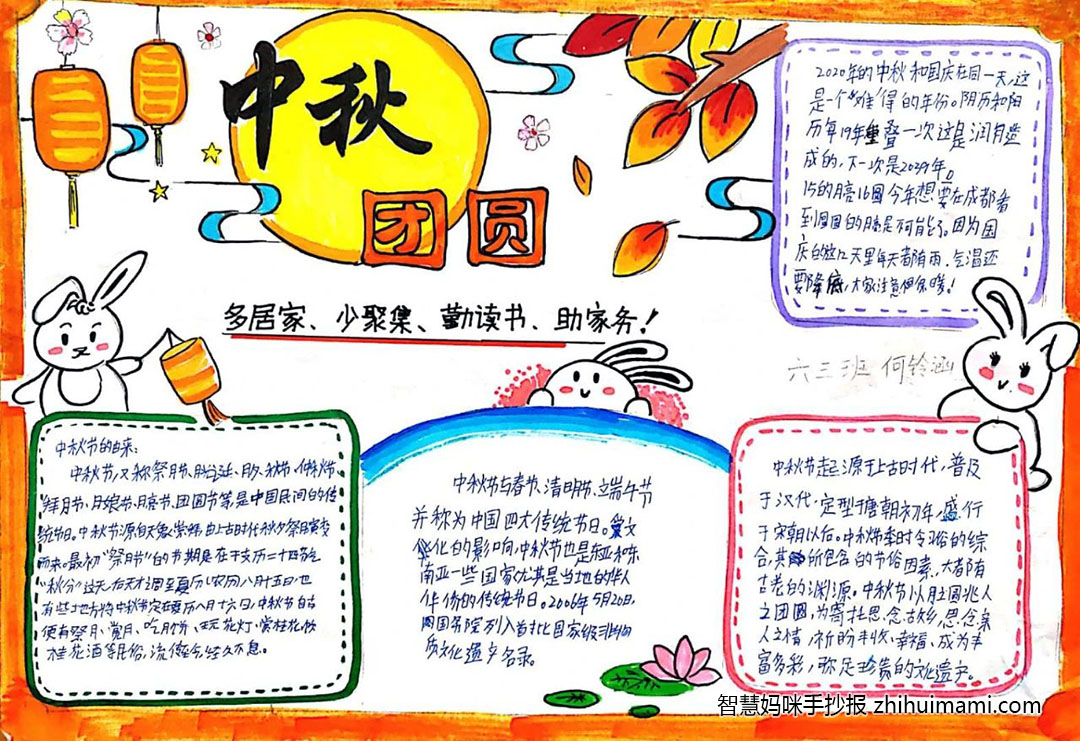 中秋
团圆
多居家、少聚集、勤读书、助家务！
2020年的中秋和国庆在同一天，这
是一个"难"得的年份。阴历和阳
历每19年重叠一次这是润月造
成的，下一次是2039年。
15的月亮16圆今年想要在成都看
到圆圆的月亮是不可能了。因为国
庆的这几天里每天都有雨，气温还
要降底，大家注意但保暖！
六三班 何铃涵
中秋节的由来：
中秋节又称祭月节、
拜月节、月娘节、月亮节、团圆节等，是中国民间的传
统节日。中秋节源自天象崇拜，由上古时代秋夕祭月演变
而来。最初"祭月节"的节期是在干支历二十四节气
"秋分"这天，后来才调至夏历(农历)八月十五日，也
有些地方将中秋节定在夏历八月十六日，中秋节自古
便有祭月、赏月、吃月饼、玩花灯、赏桂花、饮
桂花酒等民俗，流传至今，经久不息。
中秋节与春节、清明节、端午节
并称为中国四大传统节日。受文
化的影响，中秋节也是东亚和东
南亚一些国家尤其是当地的华人
华侨的传统节日。2006年5月20日，
国务院列入首批国家级非物
质文化遗产名录。
中秋节起源于上古时代，普及
于汉代，定型于唐朝初年，盛行
于宋朝以后。中秋节是秋季时令习俗的综
合，其所包含的节俗因素，大都有
古老的渊源。中秋节以月之圆兆人
之团圆，为寄托思念故乡，思念亲
人之情，祈盼丰收、幸福，成为丰
富多彩，弥足珍贵的文化遗产。
智慧妈咪手抄报 zhihuimami.com